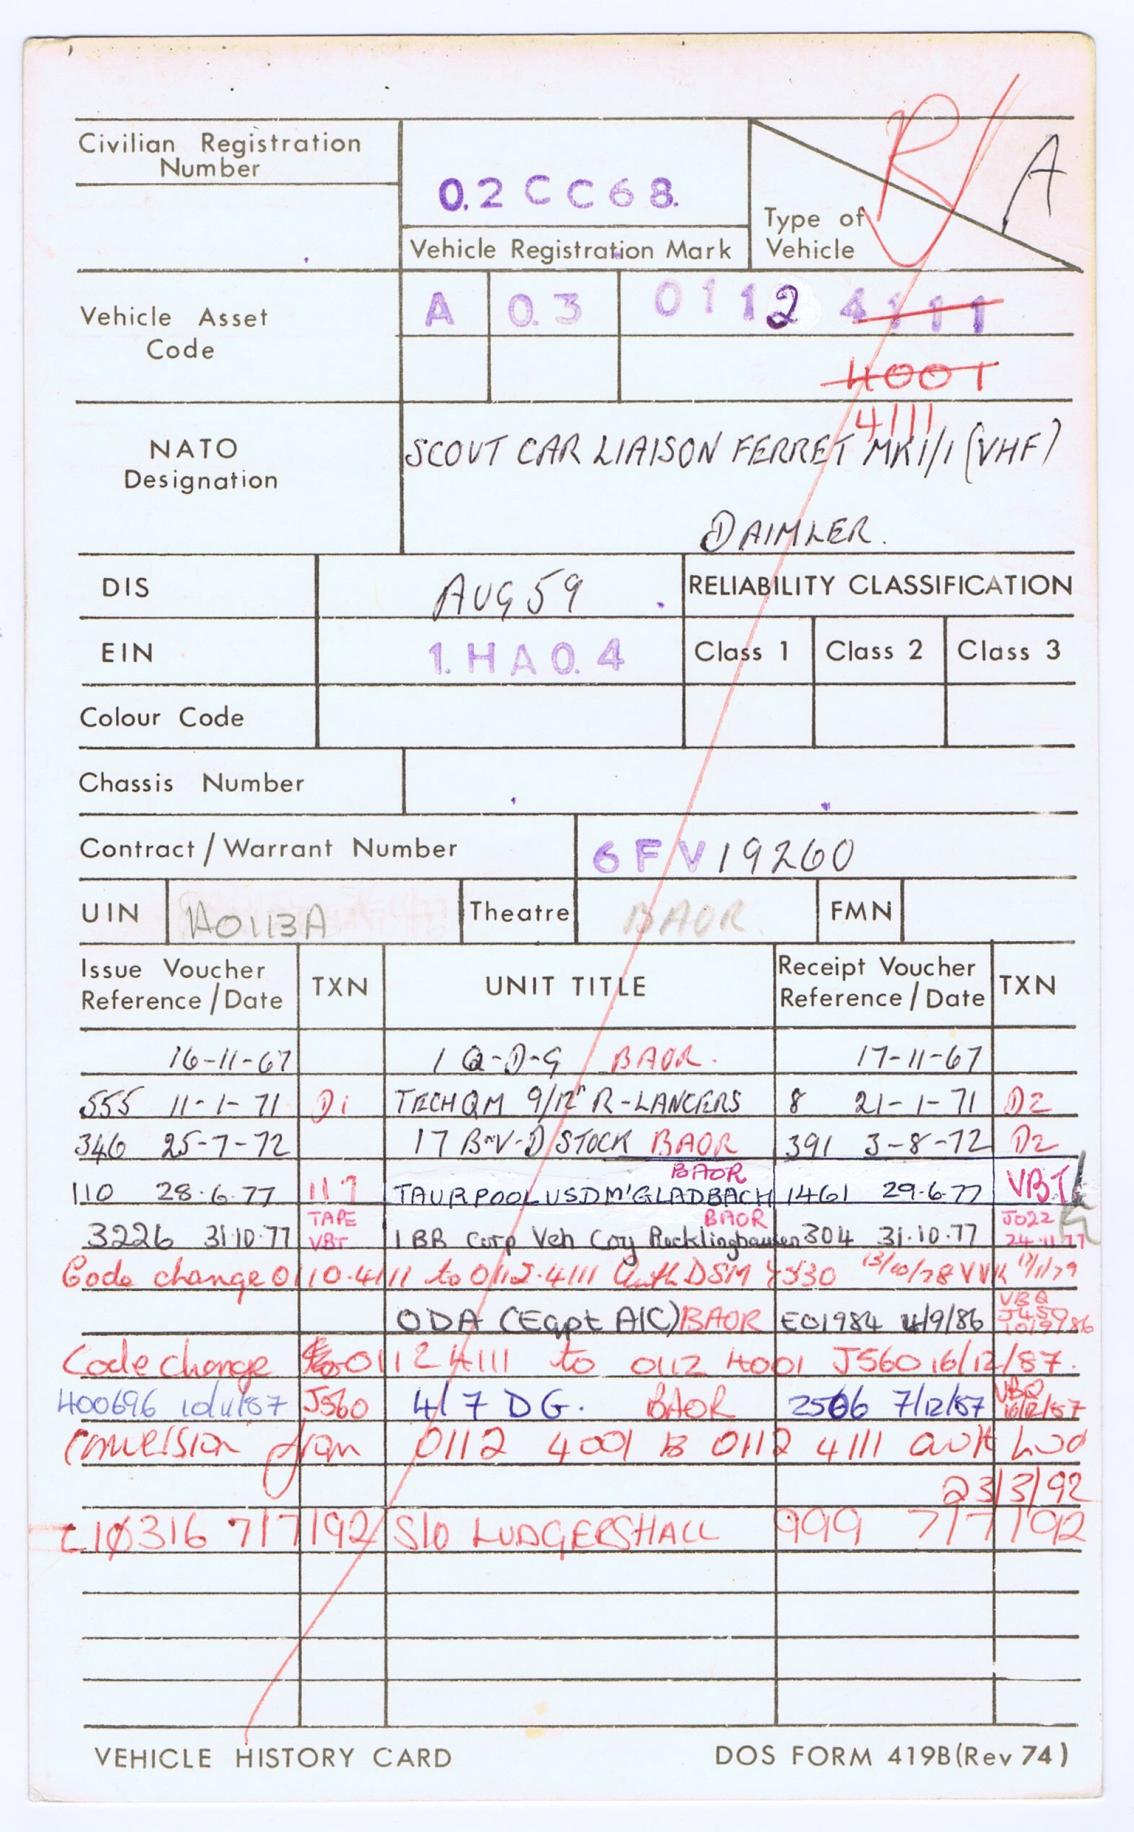 Civilian Registration Number
02CC68.
Vehicle Registration Mark
Type of Vehicle
R A
Vehicle Asset Code
A 03 0112 4111
4001
4111
NATO Designation
SCOUT CAR LIAISON FERRET MK1/1 (VHF)
DAIMLER.
DIS AUG 59 RELIABILITY CLASSIFICATION
EIN 1.HA0.4 Class 1 Class 2 Class 3
Colour Code
Chassis Number
Contract/Warrant Number 6FV19260
UIN A0113A Theatre BAOR. FMN
Issue Voucher Reference/Date TXN UNIT TITLE Receipt Voucher Reference/Date TXN
16-11-67 1 Q-D-G BAOR. 17-11-67
555 11-1-71 D1 TECHQM 9/12" R-LANCERS 8 21-1-71 D2
346 25-7-72 17 B-V-D STOCK BAOR 391 3-8-72 D2
BAOR
110 28.6.77 TAURPOOL USDM'GLADBACH 1461 29.6.77 VBT
TAPE BAOR J022
3226 31.10.77 VBT 1BR Corp Veh Coy Recklinghausen 304 31.10.77 24.11.77
Code change 0110.4111 to 0112.4111 Auth DSM 13/10/78 17/1/79
ODA (Eqpt A/C) BAOR E01984 4/9/86 VBQ J450 10/9/86
Code change 0112 4111 to 0112 4001 J560 16/12/87.
400696 10/11/87 J560 4/7 DG. BAOR 2506 7/12/87 VBQ 16/12/87
Conversion from 0112 4001 to 0112 4111 auth
23/3/92
10316 7/7/92 S/O LUDGERSHALL 999 7/7/92
VEHICLE HISTORY CARD DOS FORM 419B(Rev 74)